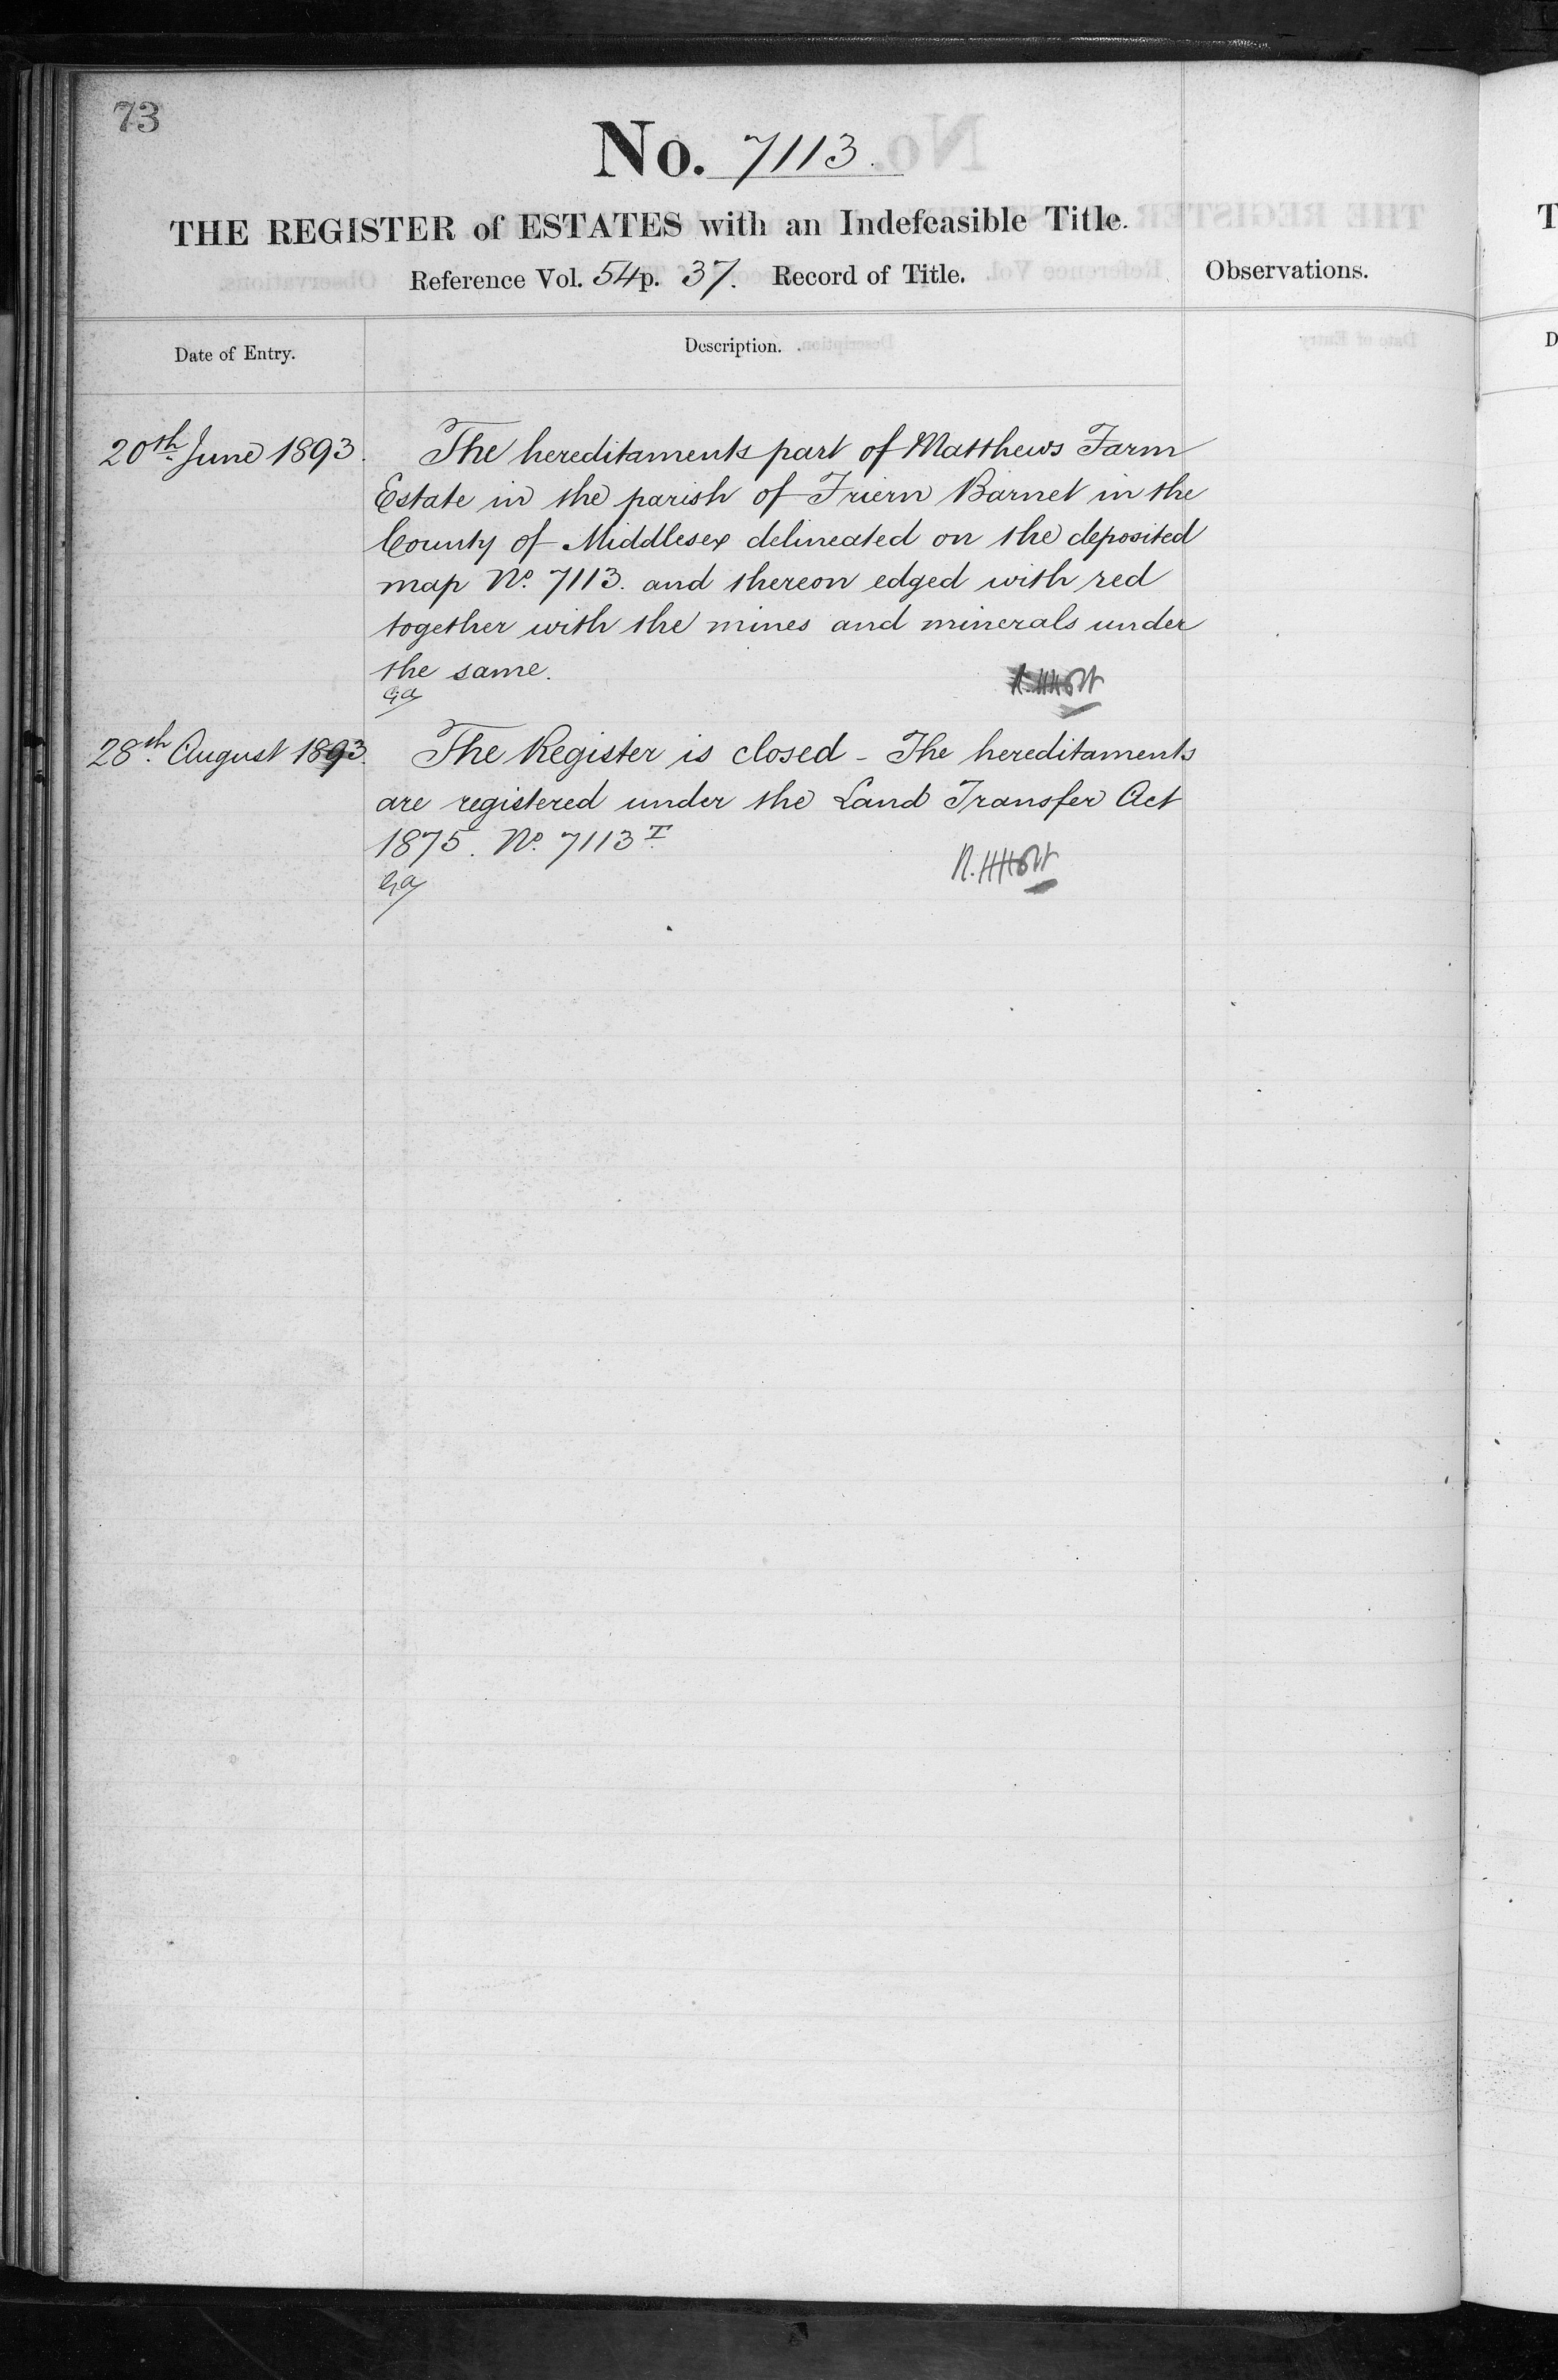 73
No. 7113.
THE REGISTER of ESTATES with an Indefeasible Title.
Reference Vol. 54 p. 37. Record of Title.
Observations.
Date of Entry.
Description.
20th June 1893.
The hereditaments part of Matthews Farm
Estate in the parish of Friern Barnet in the
County of Middlesex delineated on the deposited
map No. 7113. and thereon edged with red
together with the mines and minerals under
the same.
28th August 1893.
The Register is closed - The hereditaments
are registered under the Land Transfer Act
1875. No. 7113 I.